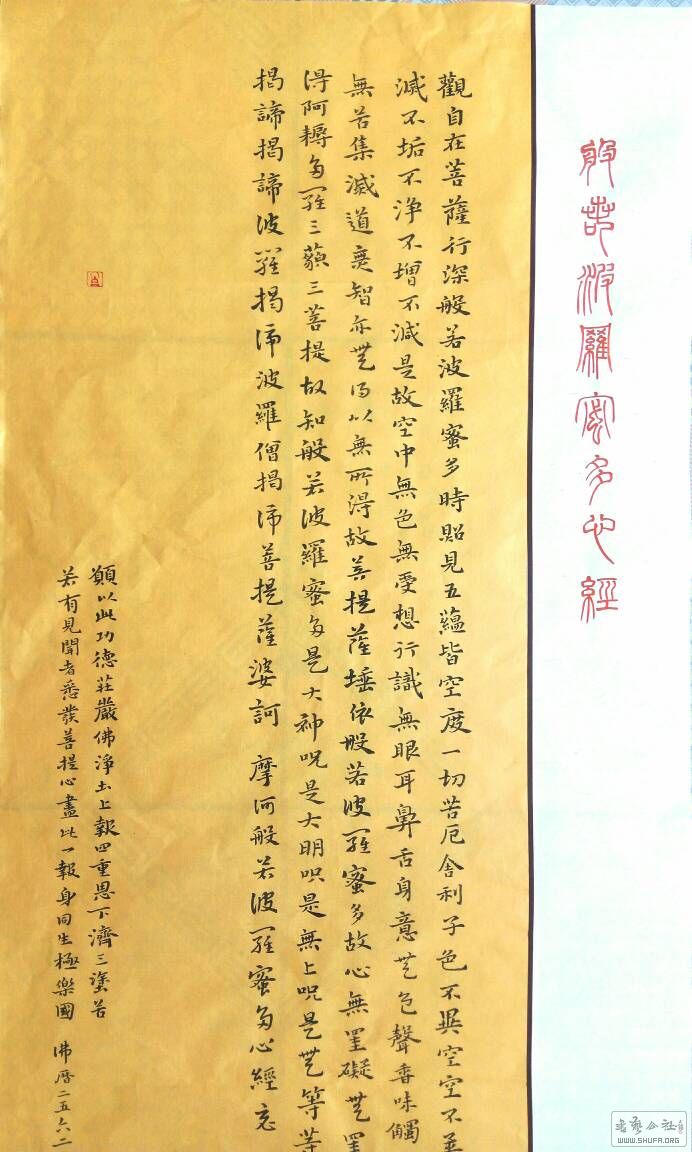 般若波羅蜜多心經
觀自在菩薩行深般若波羅蜜多時照見五蘊皆空度一切苦厄舍利子色不異空空不異
滅不垢不淨不增不減是故空中無色無受想行識無眼耳鼻舌身意無色聲香味觸
無苦集滅道無智亦無得以無所得故菩提薩埵依般若波羅蜜多故心無罣礙無罣
得阿耨多羅三藐三菩提故知般若波羅蜜多是大神咒是大明咒是無上咒是無等等
揭諦揭諦波羅揭帝波羅僧揭帝菩提薩婆訶 摩訶般若波羅蜜多心經
願以此功德莊嚴佛淨土上報四重恩下濟三塗苦
若有見聞者悉發菩提心盡此一報身同生極樂國 佛曆二五六二
书艺公社
WWW.SHUFA.ORG